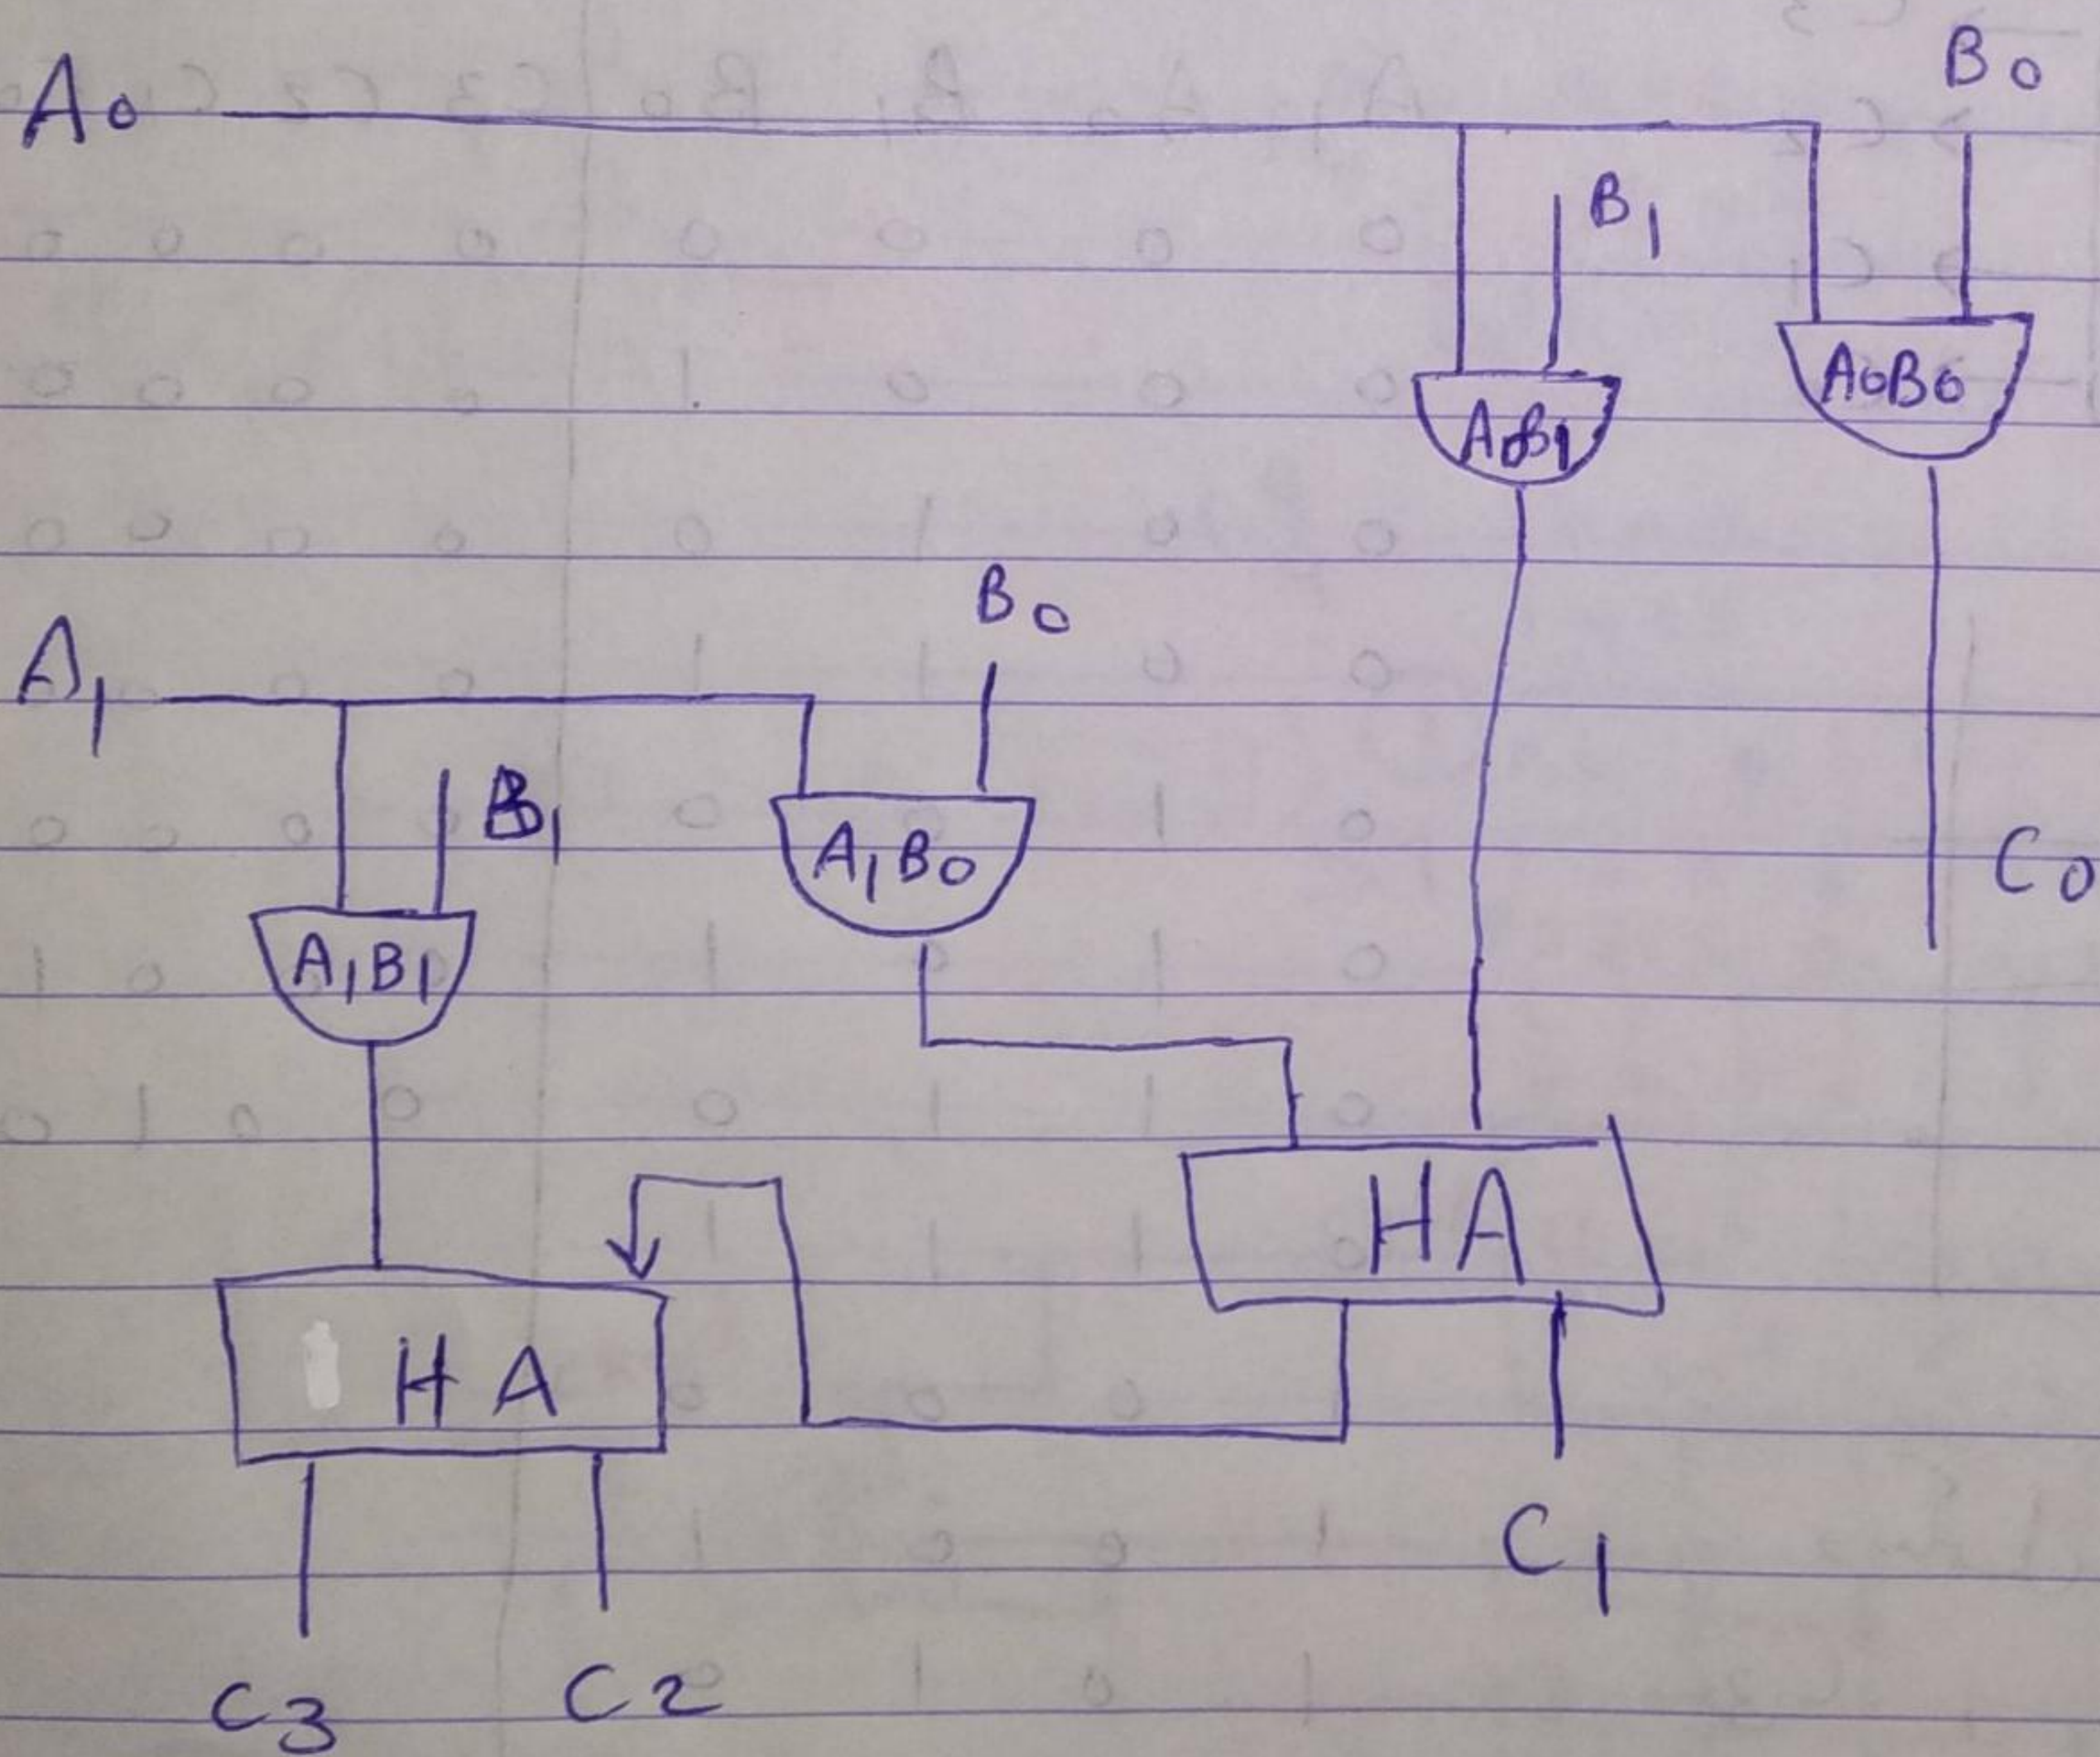 A0
B0
B1
A0B1
A0B0
B0
A1
B1
A1B0
C0
A1B1
HA
HA
C1
C3
C2